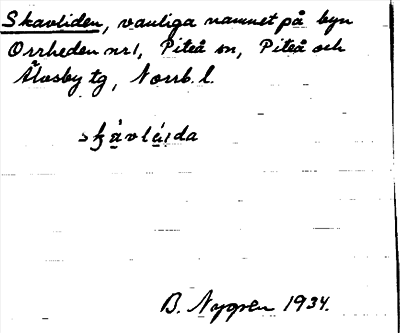 Skavliden, vanliga namnet på byn
Orrheden nr 1, Piteå sn, Piteå och
Älvsby tg, Norrb. l.
skàvláida
B. Nygren 1934.